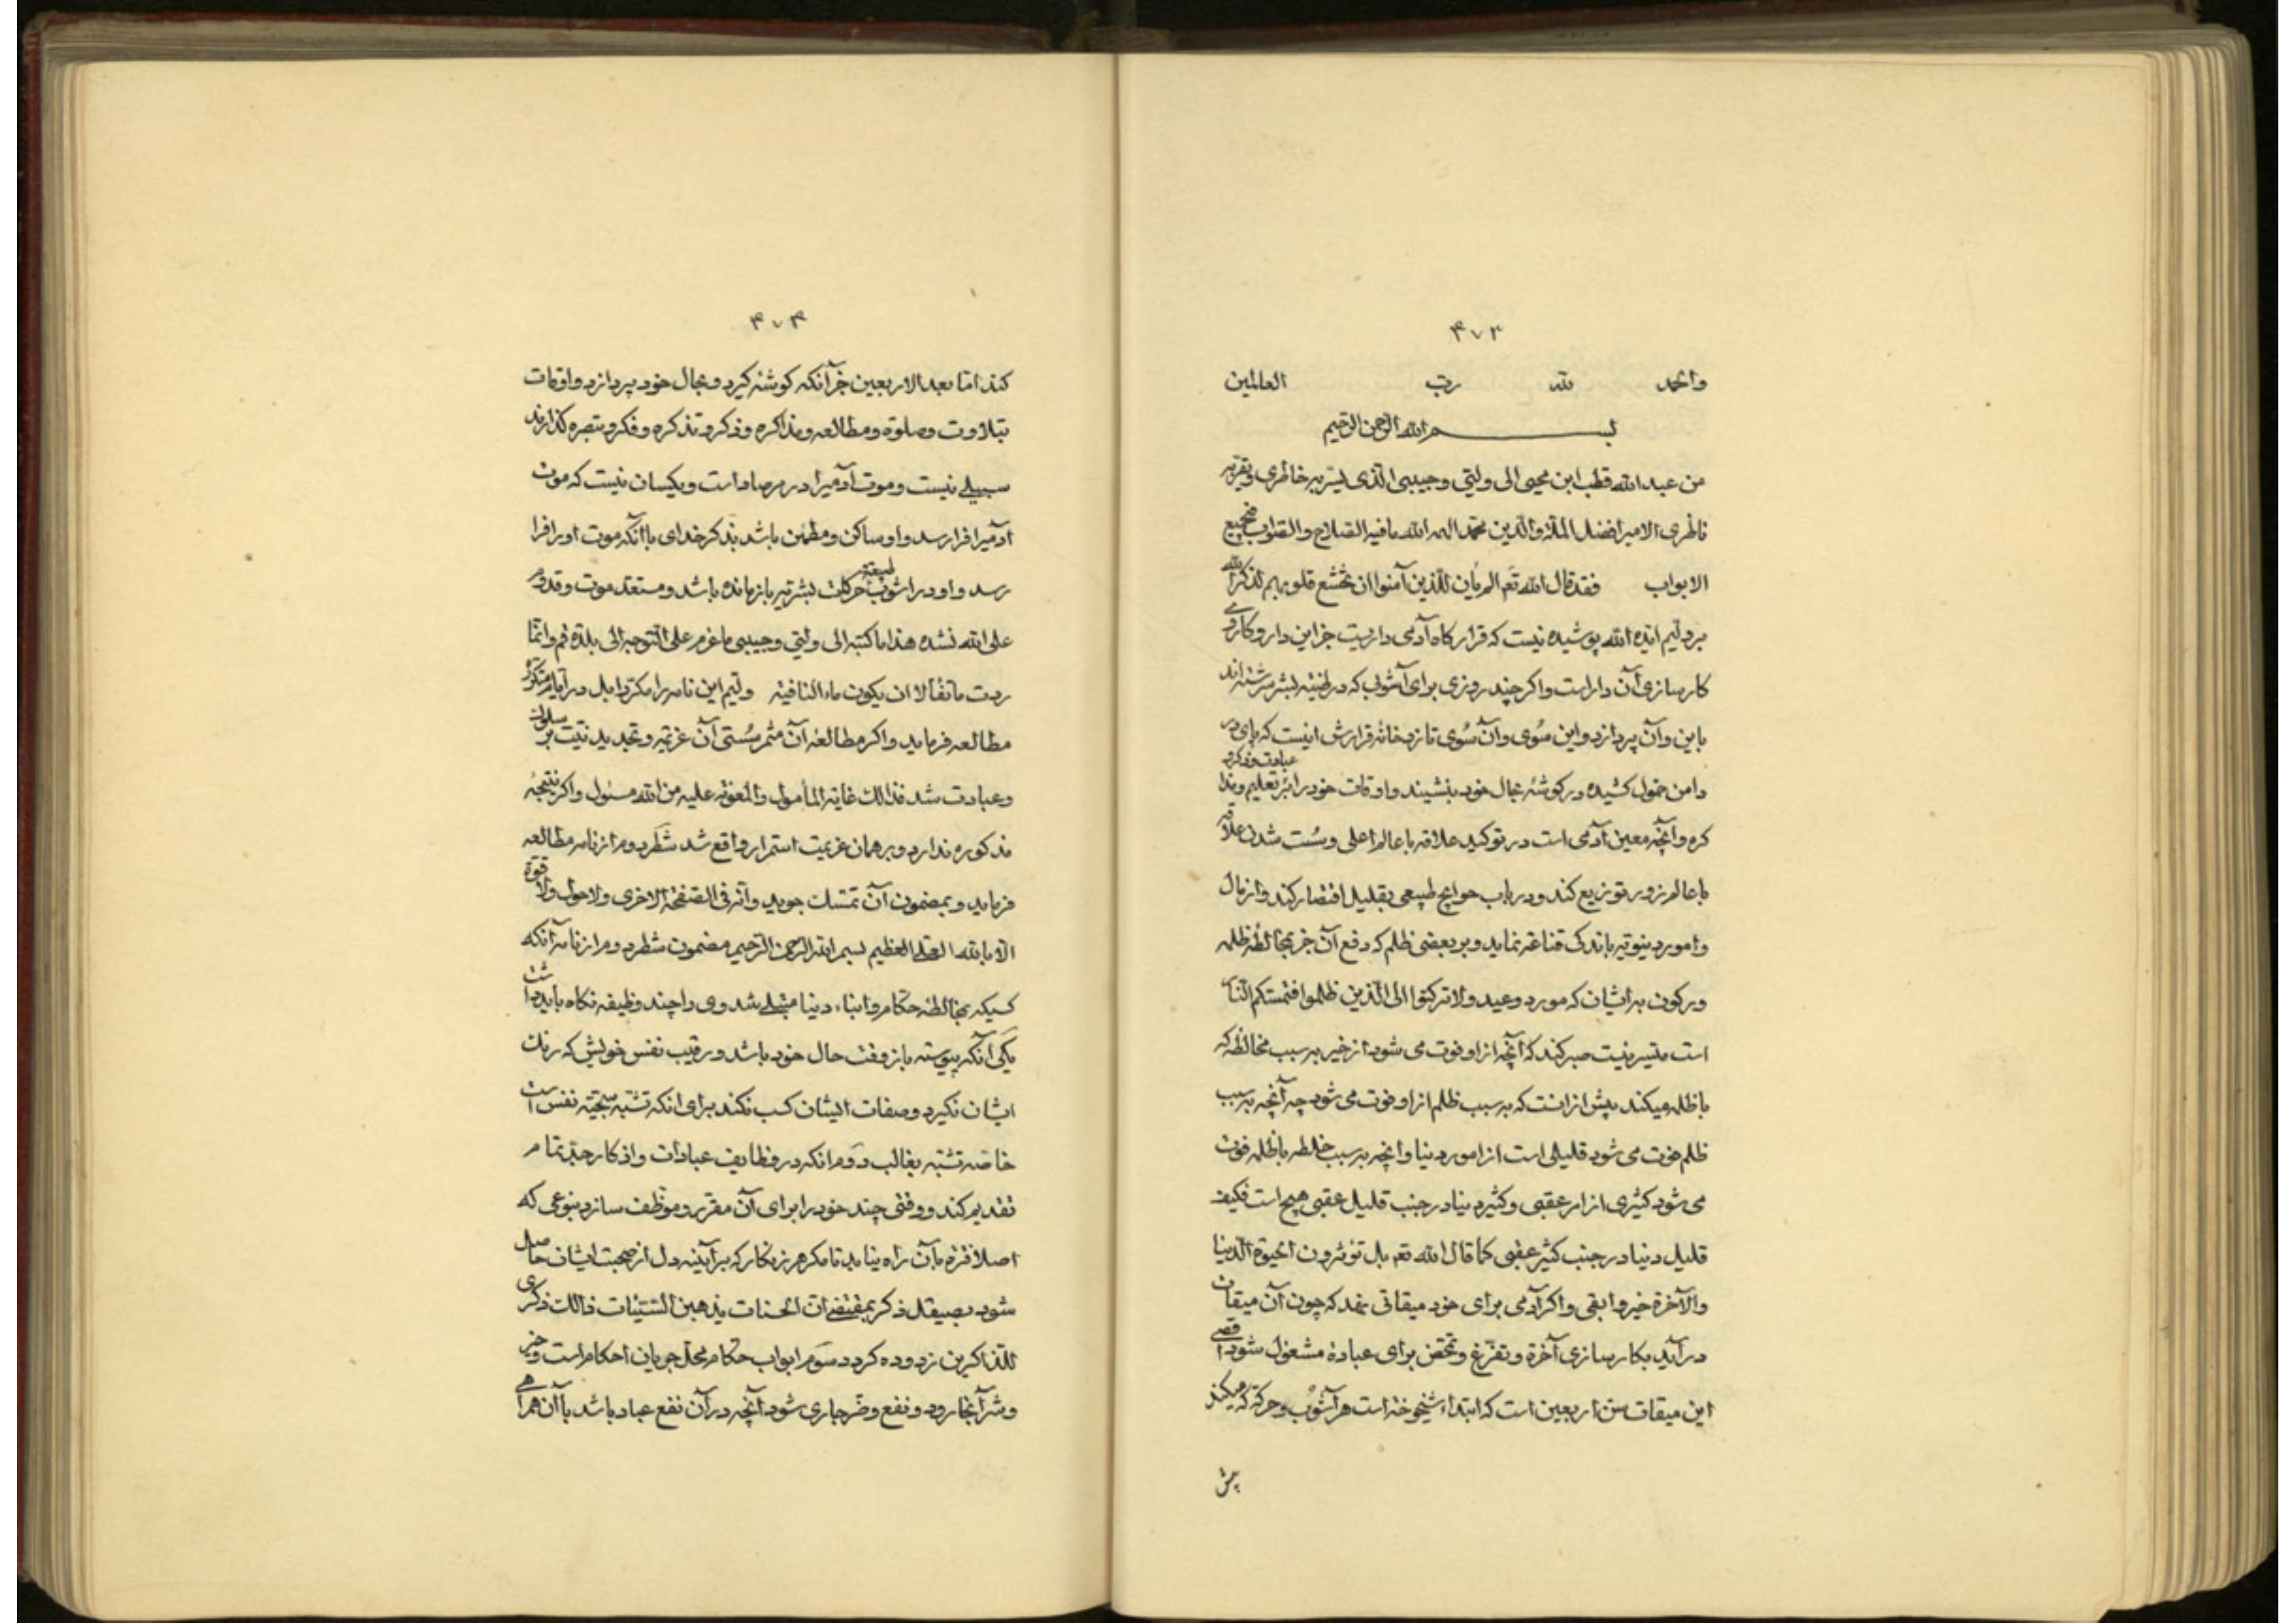 ۴۷۳
والحمد لله رب العالمین
بسم الله الرحمن الرحیم
من عبد الله قطب ابن محیی الی ولیی و حبیبی الذی یسر به خاطری و یقر به
ناظری الامیر افضل الملة والدین محمد الهمه الله ما فیه الصلاح و الصواب فی جمیع
الابواب فقد قال الله تعم الم یأن للذین آمنوا ان تخشع قلوبهم لذکر الله
بر ولیم ایده الله پوشیده نیست که قرارگاه آدمی داریست جز این دار و کار وی
کارسازی آن دار است و اگر چند روزی برای آشوبی که در طینه بشر سرشته اند
باین و آن پردازد و این سوی و آن سوی تازد خانه قرارش اینست که پای در
دامن خمول کشیده در گوشه بحال خود بنشیند و اوقات خود را بر تعلیم و عبادت و فکر و مذا
کره و آنچه معین آدمی است در توکید علاقه با عالم اعلی و سست شدن علاقه
با عالم زور توزیع کند و در باب حوایج طبیعی بقلیل اقتصار کند و از مال
و امور دنیویه باندکی قناعه نماید و بر بعضی ظلم که دفع آن جز بمخالطه ظلمه
و رکون بر ایشان که مورد وعید ولا ترکنوا الی الذین ظلموا فتمسکم النار
است متیسر نیست صبر کند که آنچه از او فوت می شود از خیر به سبب مخالطه که
با ظلمه میکند بیش از انست که به سبب ظلم از او فوت می شود چه آنچه به سبب
ظلم فوت می شود قلیلی است از امور دنیا و آنچه به سبب خلطه با ظلمه فوت
می شود کثیری از امر عقبی و کثیر دنیا در جنب قلیل عقبی هیچ است فکیف
قلیل دنیا در جنب کثیر عقبی کما قال الله تعم بل تؤثرون الحیوة الدنیا
والآخرة خیر و ابقی و اگر آدمی برای خود میقاتی نهد که چون آن میقات
در آید بکارسازی آخرة و تفرغ و تحقن برای عبادة مشغول شود اقصی
این میقات سن اربعین است که ابتداء شیخوخه است هر آشوب و حرکة که میکند
پیش
۴۷۴
کند اما بعد الاربعین جز آنکه گوشه گیرد و بحال خود پردازد و اوقات
بتلاوت و صلوة و مطالعه و مذاکره و ذکر و تذکره و فکر و تبصره گذارند
سبیلی نیست و موت آدمیرا در مرصاد است و یکسان نیست که موت
آدمیرا فرا رسد و او ساکن و مطمئن باشد بذکر خدای با آنکه موت او را فرا
رسد و او در آشوب طبیعة و حرکات بشریه بازمانده باشد و مستعد موت و قدوم
علی الله نشده هذا ما کتبه الی ولیی و حبیبی ما عزم علی التوجه الی بلدة قم و انما
ردت ما تفألا ان یکون ماء النافیة ولیم این نامه را مکررا بل در ایام متکرر
مطالعه فرماید و اگر مطالعه آن مثمر سستی آن عزیمه و تجدید نیت بر سلوک
و عبادت شد فذالک غایة المأمول و المعونة علیه من الله مسئول و اگر نتیجه
مذکوره ندارد و بر همان عزیمت استمرار واقع شد شطر دوم از نامه مطالعه
فرماید و بمضمون آن تمسک جوید و انه فی الصفحة الاخری ولا حول ولا قوة
الا بالله العلی العظیم بسم الله الرحمن الرحیم مضمون شطر دوم از نامه آنکه
کسیکه بمخالطه حکام و ابناء دنیا مبتلی شد وی را چند وظیفه نگاه باید داشت
یکی آنکه پیوسته باز وقت حال خود باشد و رقیب نفس خویش که رنگ
ایشان نگیرد و صفات ایشان کسب نکند برای آنکه تشبه سجیه نفس است
خاصه تشبه بغالب دوم آنکه در وظایف عبادات و اذکار جد تمام
تقدیم کند و وقتی چند خود را برای آن مقرر و موظف سازد بنوعی که
اصلا فتره بآن راه نیابد تا مگر هر زنگار که بر آینه دل از صحبت ایشان حاصل
شود بصیقل ذکر بمقتضی ان الحسنات یذهبن السیئات ذالک ذکری
للذاکرین زدوده گردد سوم ابواب حکام محل جریان احکام است و خیر
و شر آنجا رود و نفع و ضر جاری شود آنچه در آن نفع عباد باشد با آن همراهی